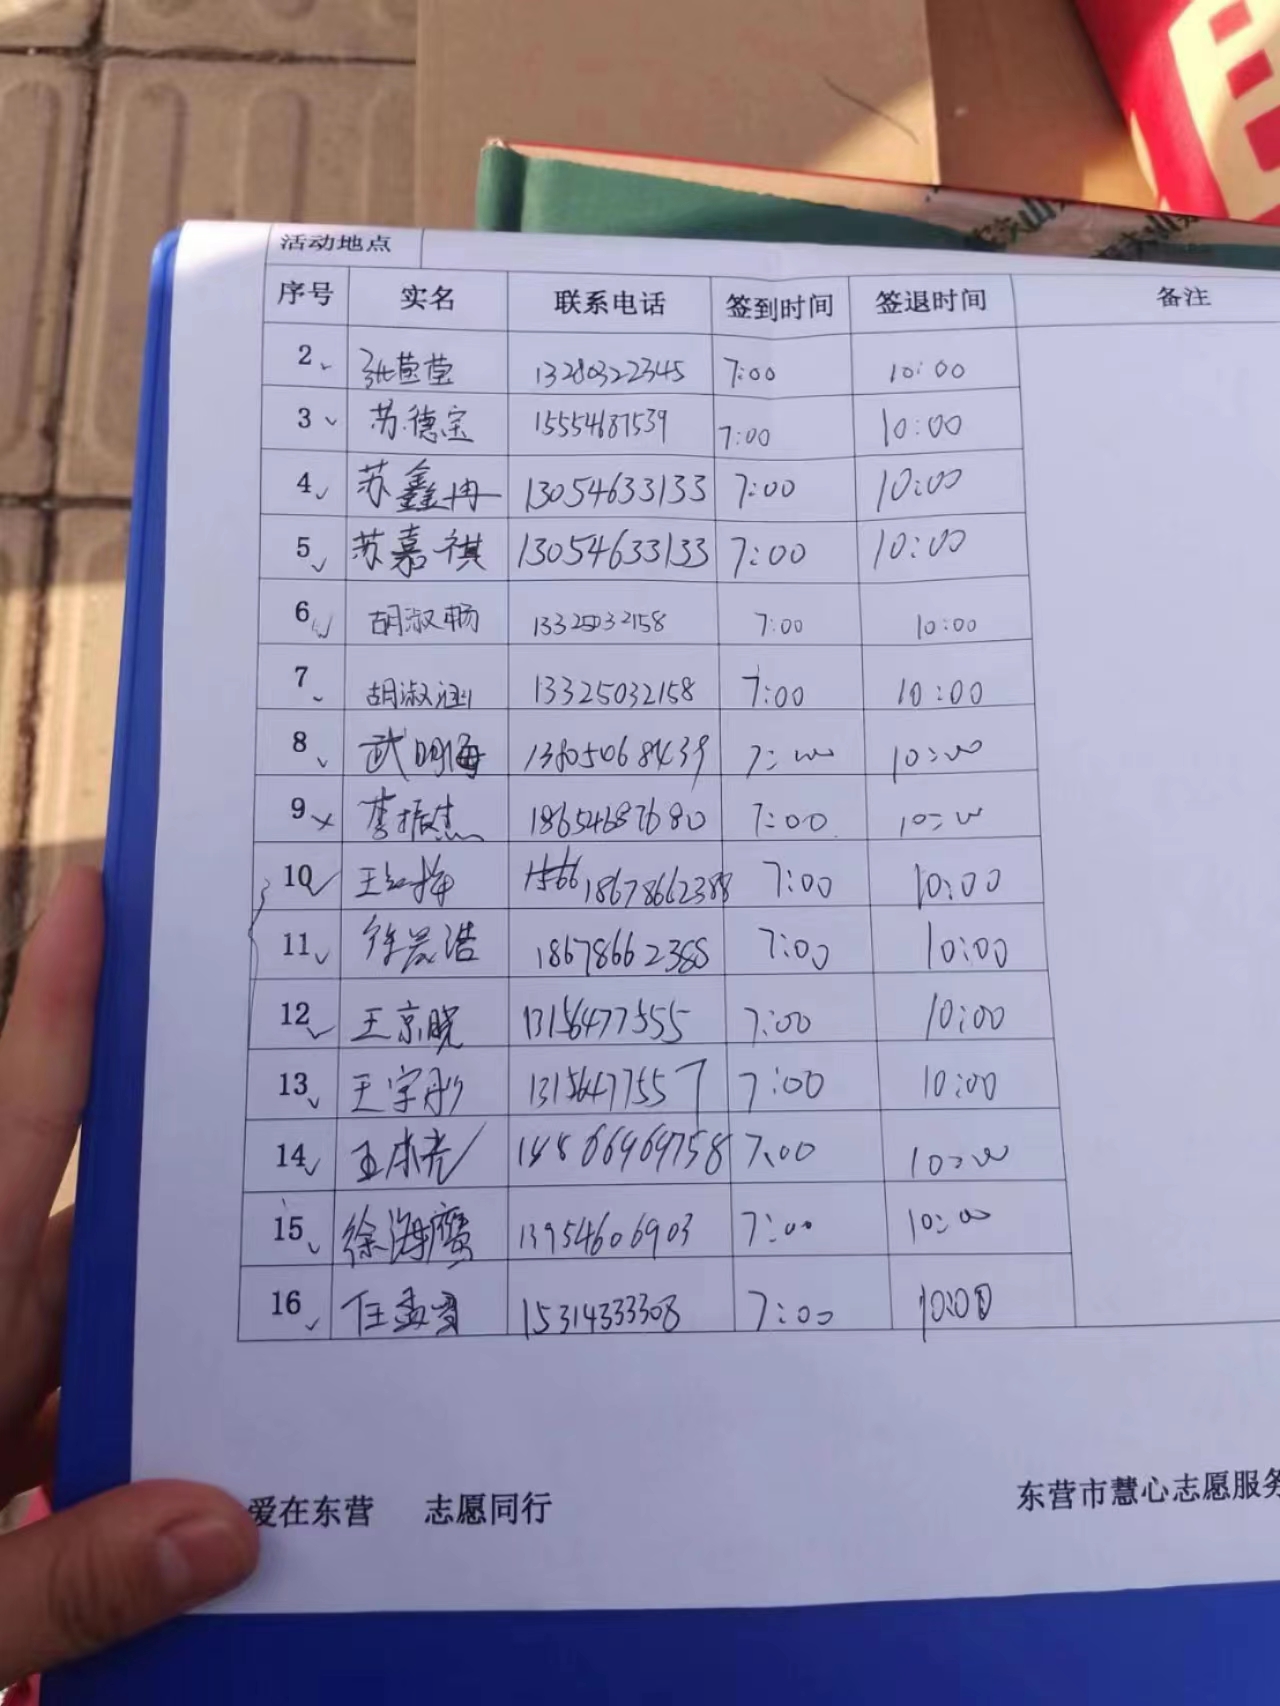 活动地点
序号 实名 联系电话 签到时间 签退时间 备注
2 张莹莹 13280322345 7:00 10:00
3 苏德宝 15554687539 7:00 10:00
4 苏鑫冉 13054633133 7:00 10:00
5 苏嘉祺 13054633133 7:00 10:00
6 胡淑畅 13325032158 7:00 10:00
7 胡淑涵 13325032158 7:00 10:00
8 武明海 13805068439 7:00 10:00
9 李振杰 18654687680 7:00 10:00
10 王红梅 18678662388 7:00 10:00
11 徐晨浩 18678662388 7:00 10:00
12 王京晓 13156477555 7:00 10:00
13 王宇彤 13156477557 7:00 10:00
14 7:00 10:00
15 徐海鹰 13954606903 7:00 10:00
16 任孟 15314333308 7:00 10:00
爱在东营 志愿同行
东营市慧心志愿服务